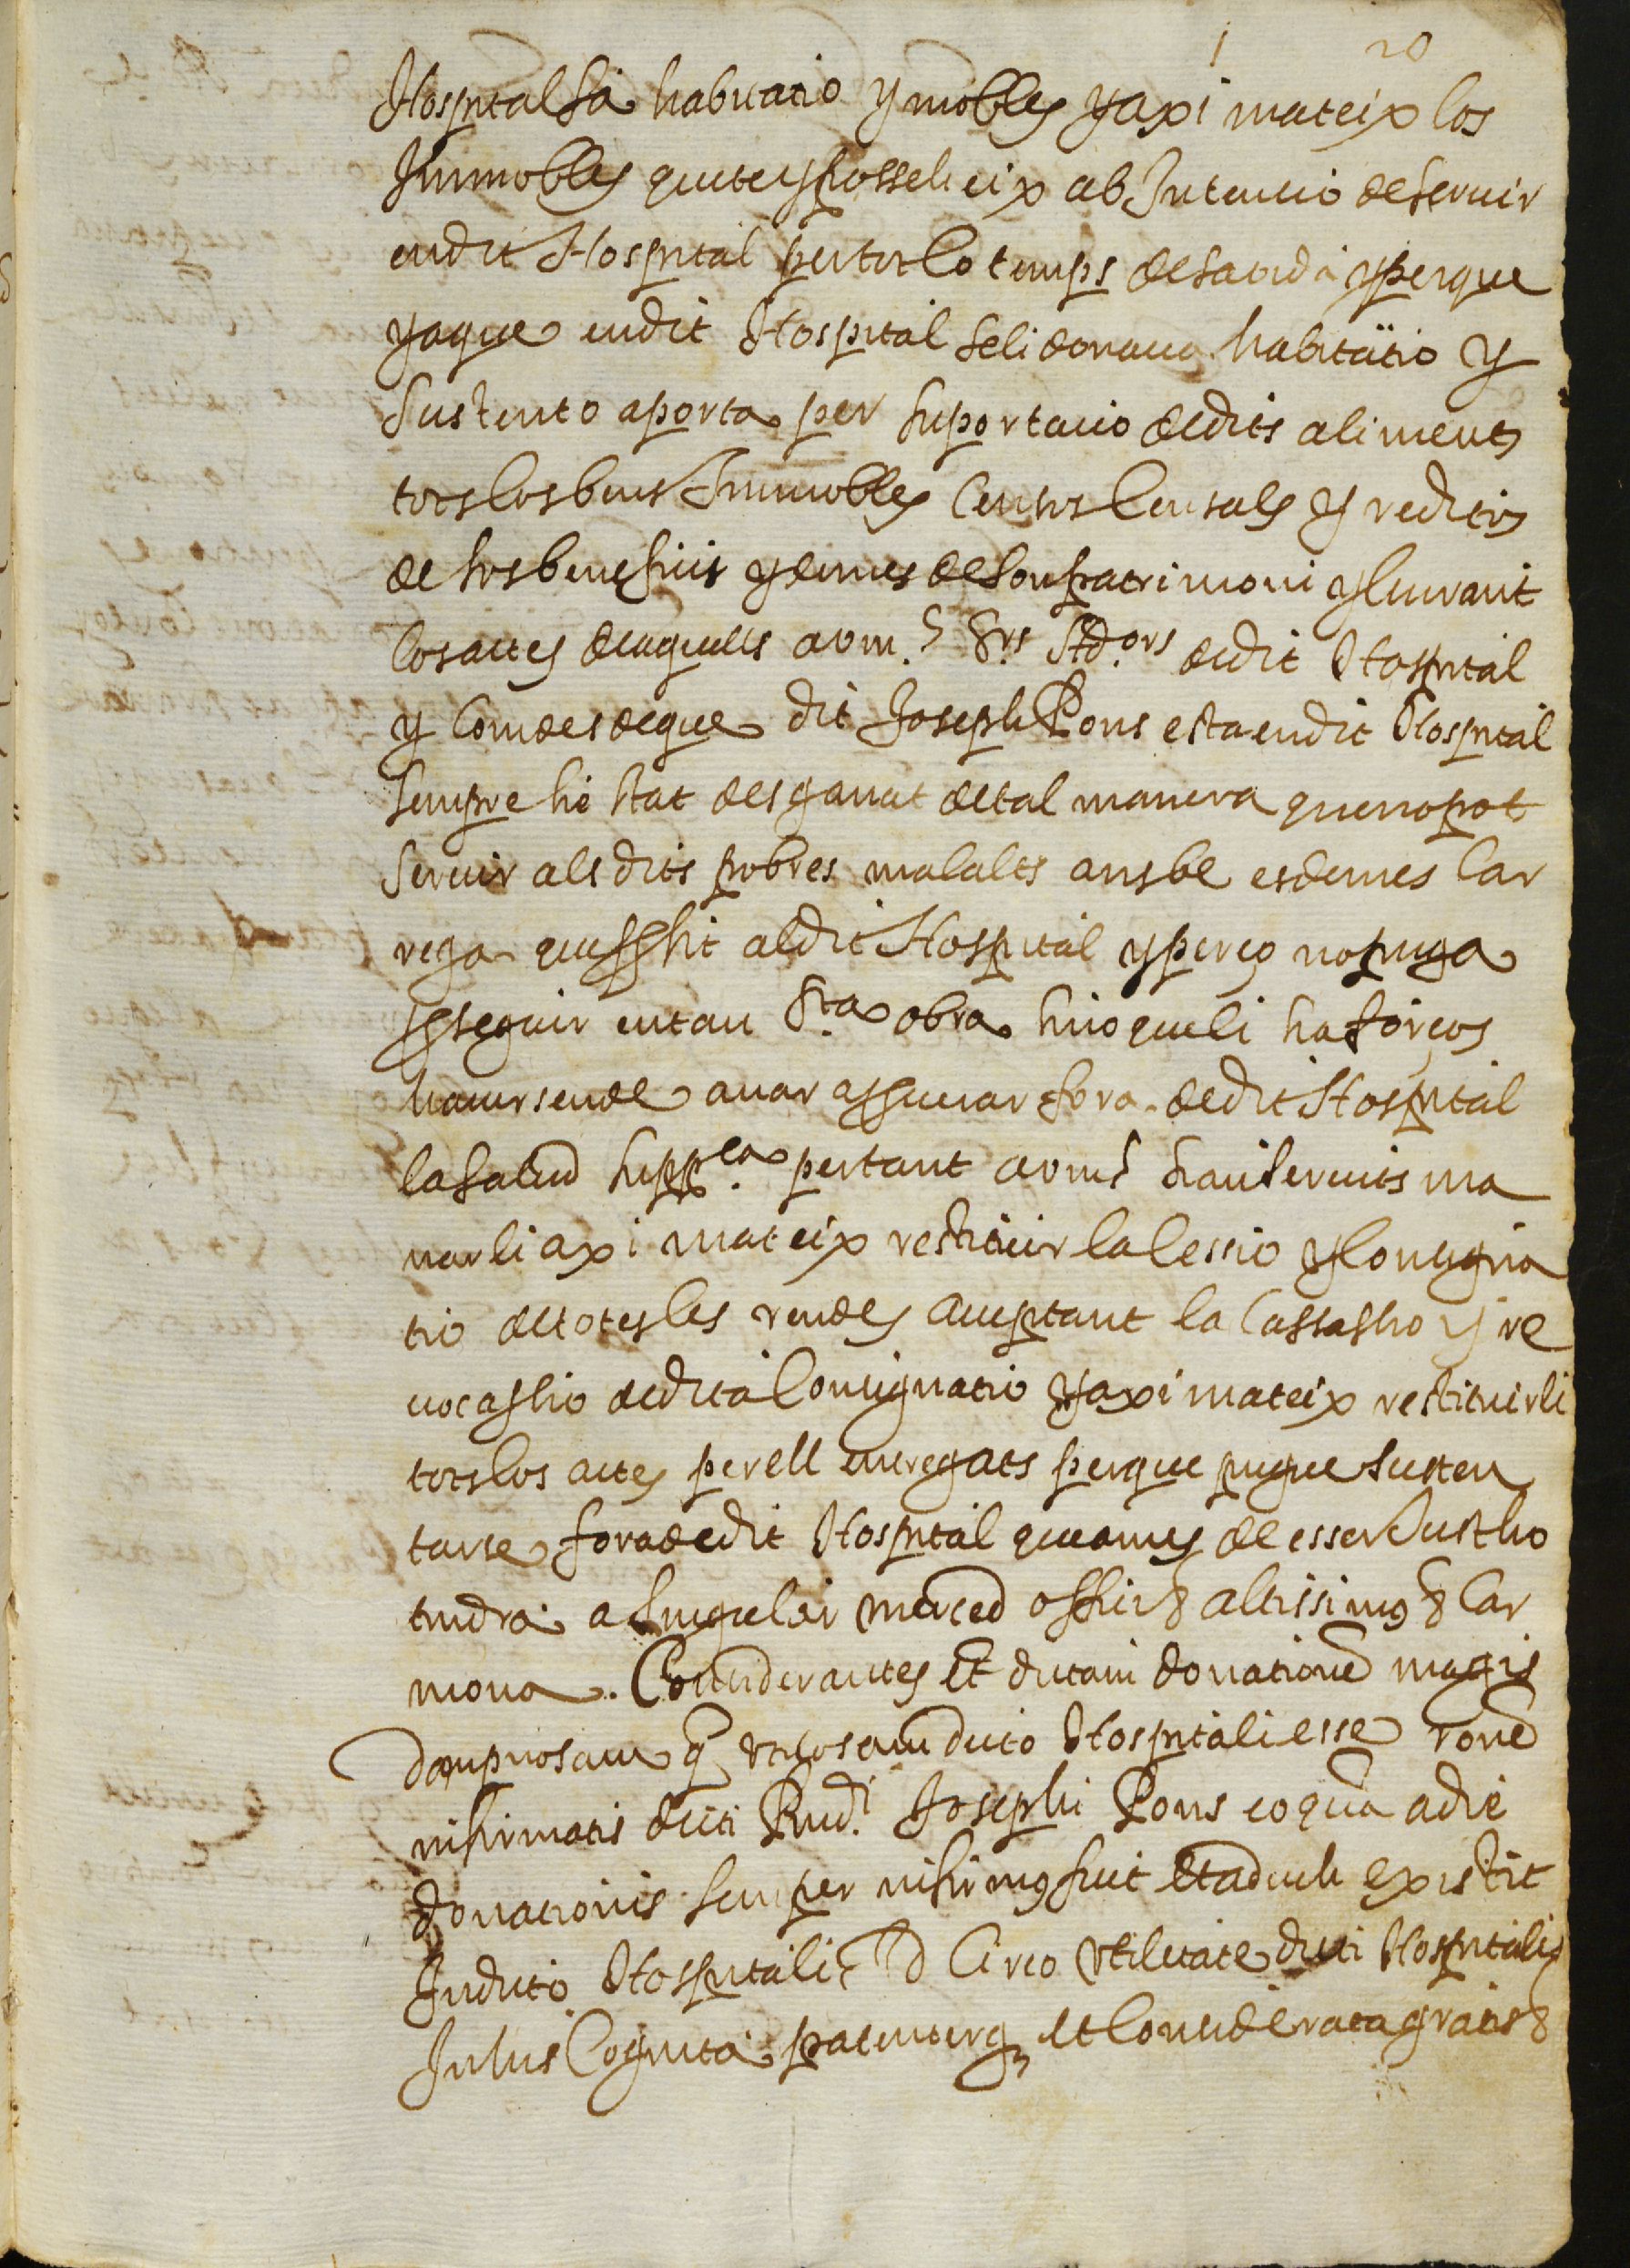 20
Hospital sa habitatio y mobles y axi mateix los
Immobles que te y posseheix ab Intencio de servir
en dit Hospital per tot lo temps de sa vida y perque
ya que en dit Hospital se li donava habitatio y
sustento aporta per suportacio de dits aliments
tots los bens Immobles Censos Censals y redits
de sos beneficis y demes de son patrimoni y lliurant
los actes de aquells a v. m.s Srs Ad.ors de dit Hospital
y com des de que dit Joseph Pons esta en dit Hospital
sempre he stat desganat de tal manera que no pot
servir als dits pobres malalts ans be es de mes Car
rega que profit al dit Hospital y per ço no puga
prosseguir en tan Sta obra sino que li ha forços
haversende anar a procurar fora de dit Hospital
la salud supp.ca per tant a v. m.s sian servits ma
nar li axi mateix restituir la Cessio y Consigna
tio de totes les rendes acceptant la Cassassio y re
vocassio de dita Consignatio y axi mateix restituirli
tots los actes per ell entregats perque pugue susten
tarse fora de dit Hospital que a mes de esser Just ho
tindra a singular merced officis & altissimus & Car
mona. Considerantes Et dictam donatione magis
dampnosam q utilosam dicto Hospitali esse rone
infirmatis dicti Rnd.i Josephi Pons eo quia a die
donationis semper infirmus fuit Et ad huc existit
In dicto Hospitali Id Circo utilitate dicti Hospitalis
In his Cognita patenterq et Considerata gratis &